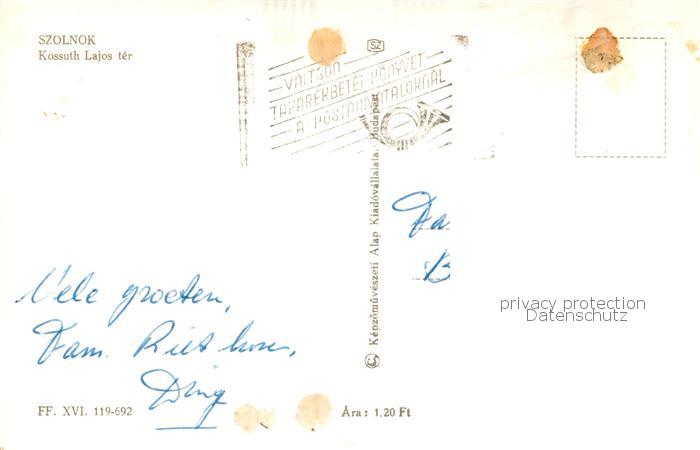 SZOLNOK
Kossuth Lajos tér
SZ
VÁLTSON
TAKARÉKBETÉT-KÖNYVET
A POSTAHIVATALOKNÁL
Képzőművészeti Alap Kiadóvállalata, Budapest
Fa
B
privacy protection
Datenschutz
Vele groeten,
Fam.
FF. XVI. 119-692
Ára: 1,20 Ft